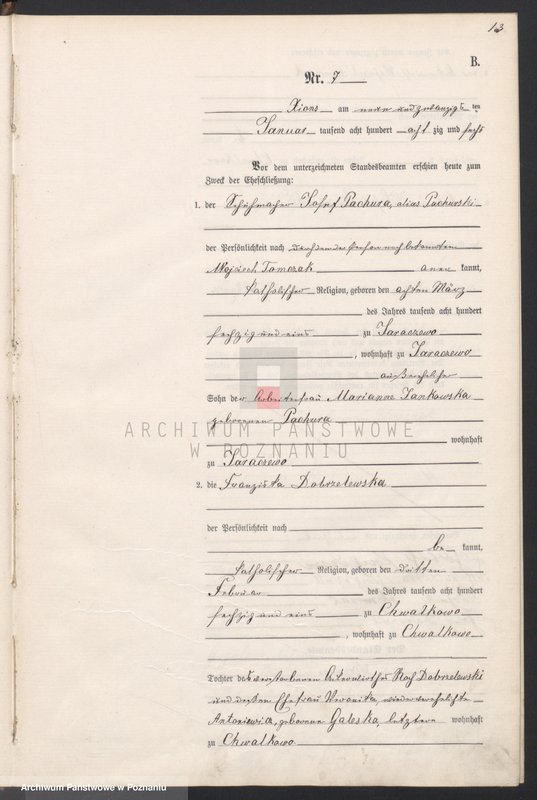 13
B.
Nr. 7
Xions am neun und zwanzigsten
Januar tausend acht hundert acht zig und sechs
Vor dem unterzeichneten Standesbeamten erschien heute zum
Zweck der Eheschließung:
1. der Schuhmacher Josef Pachura, alias Pachurski
der Persönlichkeit nach durch den der Person nach bekannten
Wojciech Tomczak aner kannt,
katholischer Religion, geboren den achten März
des Jahres tausend acht hundert
sechzig und eins zu Jaraczewo
, wohnhaft zu Jaraczewo
außerehelicher
Sohn der Arbeiterfrau Marianne Jankowska
geborenen Pachura
wohnhaft
zu Jaraczewo
ARCHIWUM PAŃSTWOWE
W POZNANIU
2. die Franziska Dobrzelewska
der Persönlichkeit nach
be kannt,
katholischer Religion, geboren den dritten
Februar des Jahres tausend acht hundert
sechzig und eins zu Chwalkowo
, wohnhaft zu Chwalkowo
Tochter des verstorbenen Dobrzelewski
und dessen Ehefrau Veronika, wiederverehelichte
Antoniewicz, geborene Galeska, letztere wohnhaft
zu Chwalkowo
Archiwum Państwowe w Poznaniu